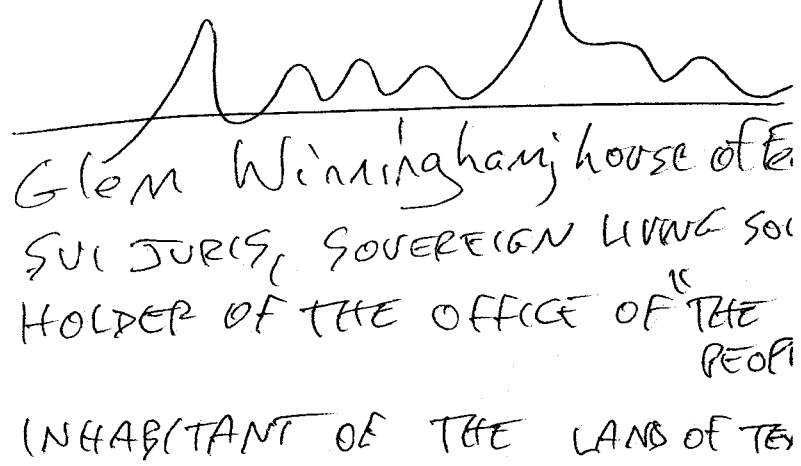 Glen Winningham; house of
SUI JURIS, SOVEREIGN LIVING
HOLDER OF THE OFFICE OF "THE
INHABITANT OF THE LAND OF